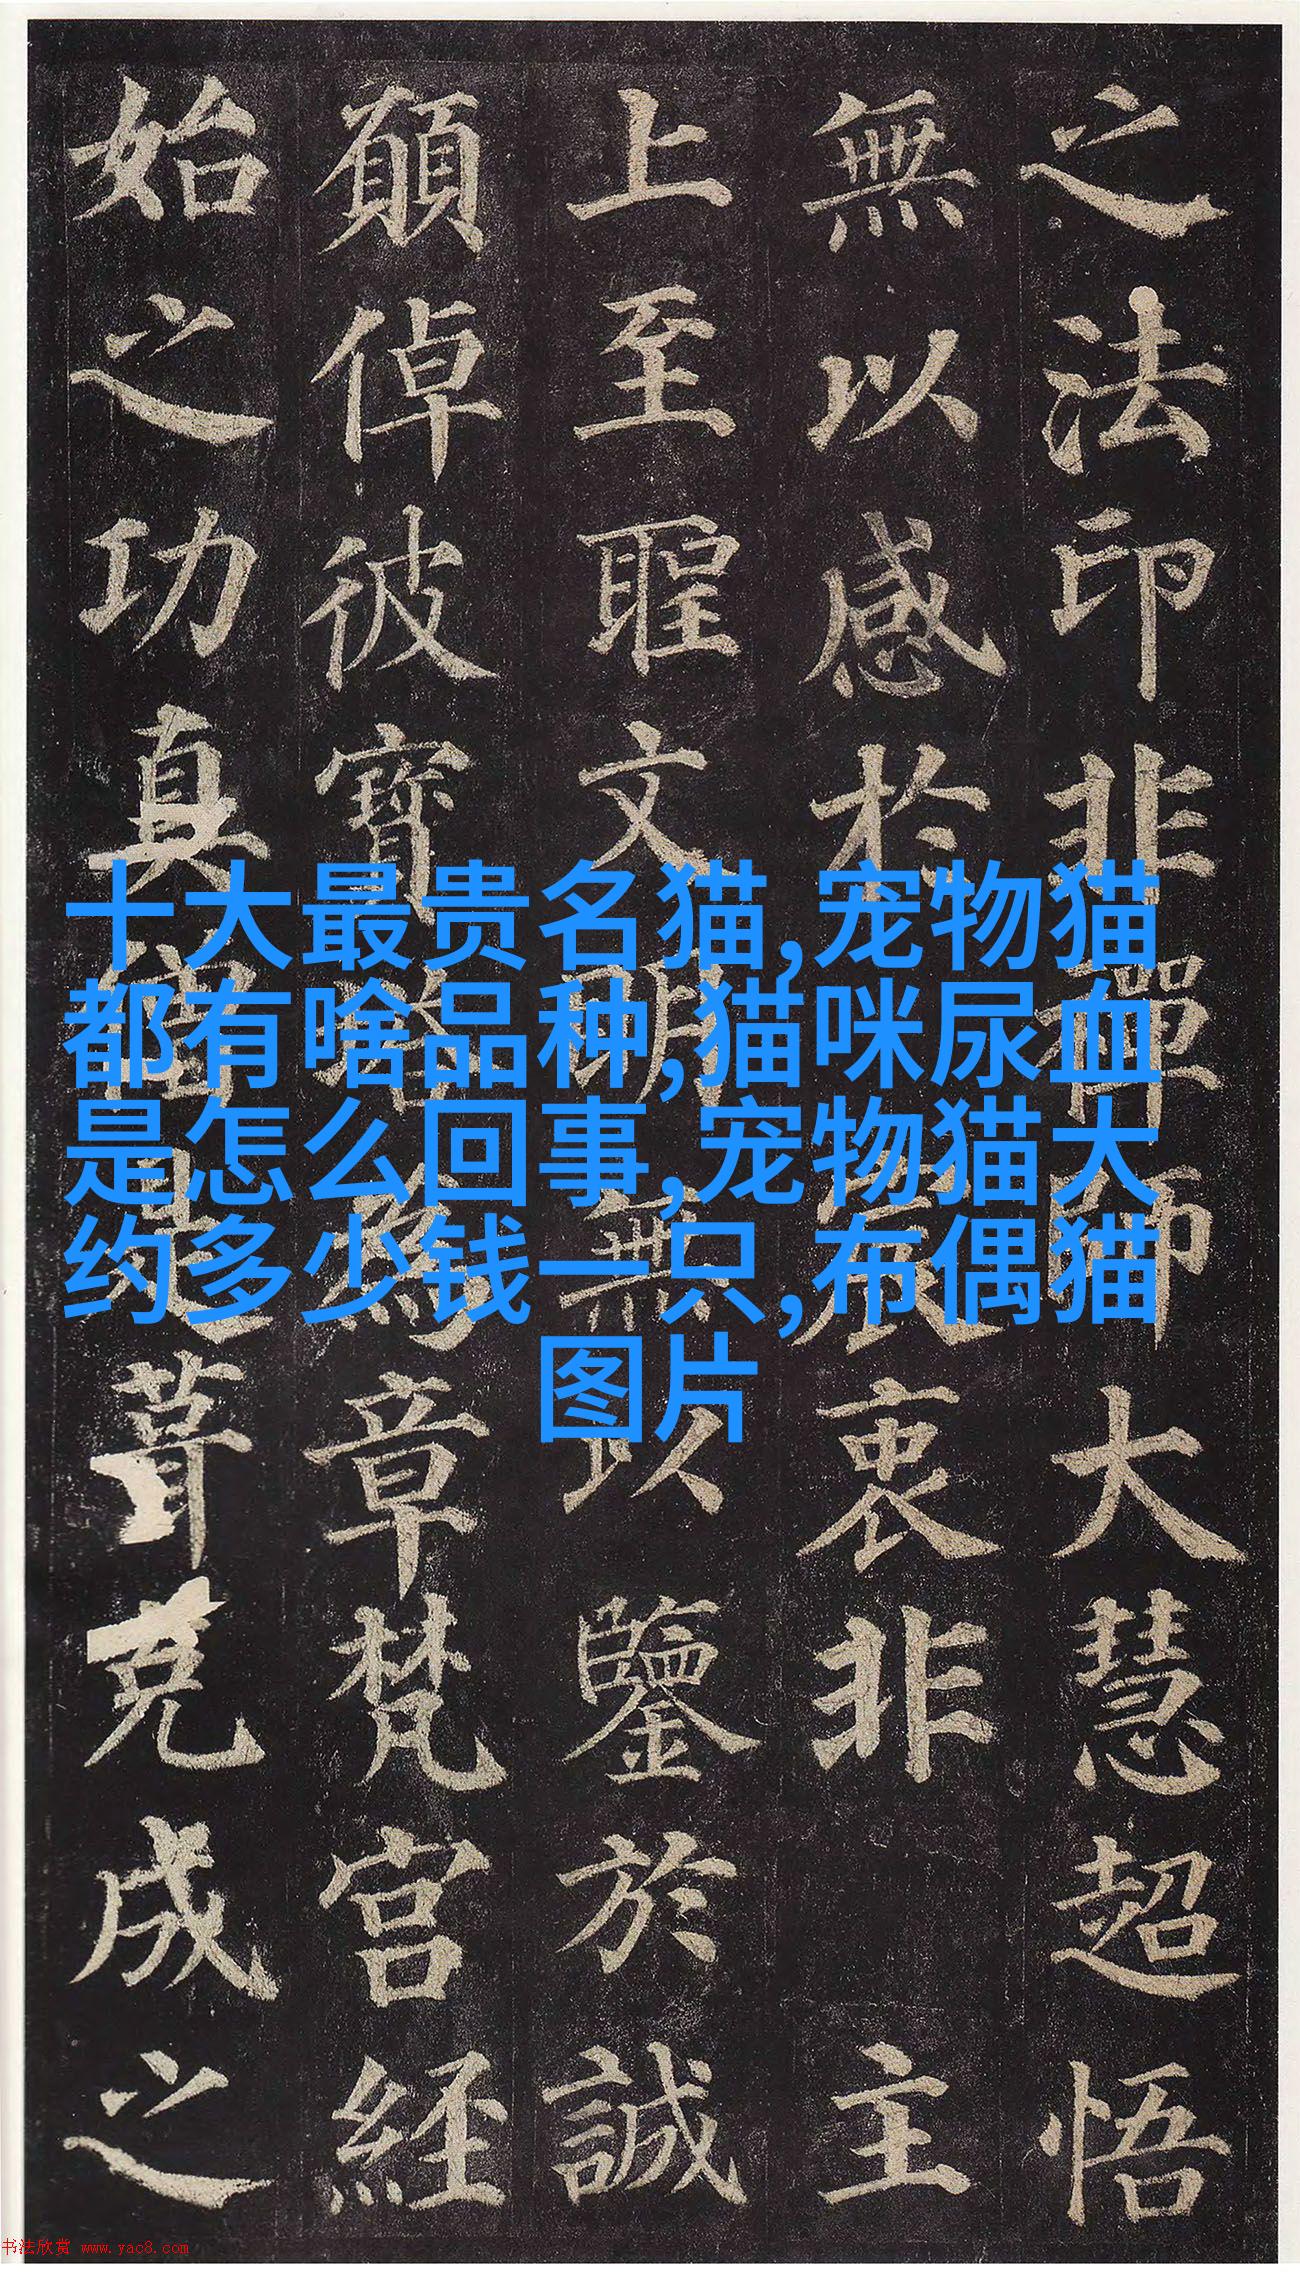 之法印非禪師大慧超悟
無以感扵宸衷非主
上至聖文明無以鑒於誠
願倬彼寶塔為章梵宮經
始之功真僧是葺克成之
十大最贵名猫,宠物猫
都有啥品种,猫咪尿血
是怎么回事,宠物猫大
约多少钱一只,布偶猫
图片
书法欣赏 www.yac8.com